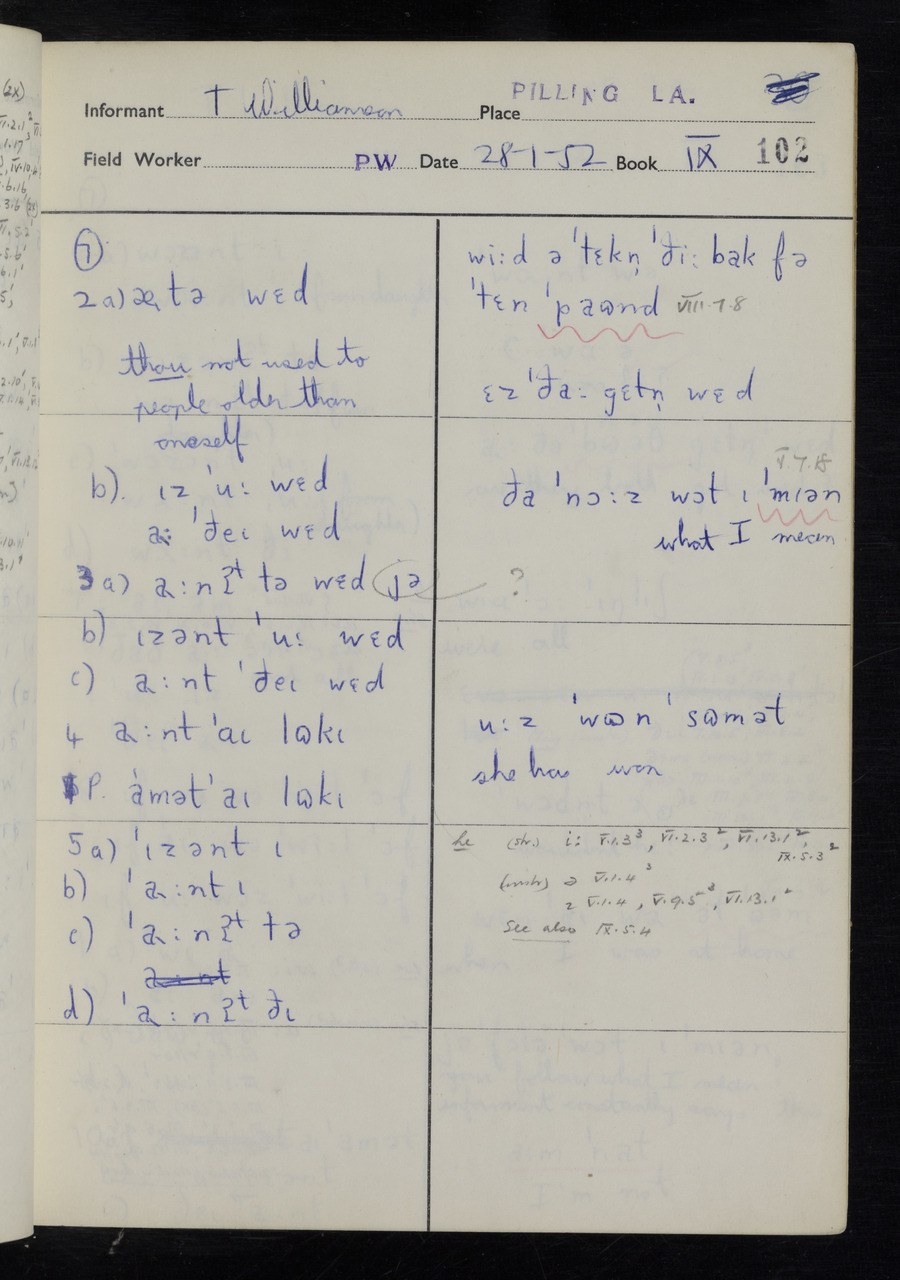 Informant T Williamson Place PILLING LA.
Field Worker PW Date 28-1-52 Book IX 102
7
2 a) æ tə wɛd
thou not used to
people older than
oneself
b). ɪz ˈuː wɛd
aː ˈðeɪ wɛd
3 a) aːnʔt tə wɛd jə
b) ɪzənt ˈuː wɛd
c) aːnt ˈðeɪ wɛd
4 aːnt ˈaɪ lʊkɪ
P. amət ˈaɪ lʊkɪ
5 a) ˈɪzənt ɪ
b) ˈaːnt ɪ
c) ˈaːnʔt tə
aːnt
d) ˈaːnʔt ðɪ
wiːd ə ˈtɛkn̩ ˈðiː bak fə
ˈtɛn ˈpaʊnd VIII.7.8
ɛz ˈðaː gɛtn̩ wɛd
V.7.18
ða ˈnɔːz wət ɪ ˈmɪən
what I mean
?
uːz ˈwʊn ˈsʊmət
she has won
he (str.) iː V.1.3³, VI.2.3², VI.13.1²,
IX.5.3²
(unstr.) ə V.1.4³
ɪ V.1.4, V.9.5³, VI.13.1²
See also IX.5.4